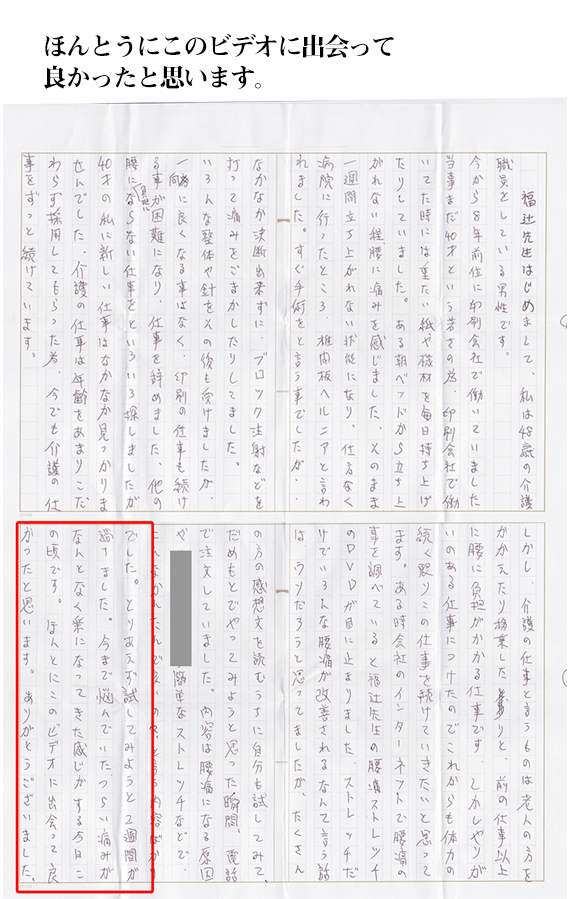 ほんとうにこのビデオに出会って
良かったと思います。
福辻先生はじめまして、私は48歳の介護
職員をしている男性です。
今から8年前位に印刷会社で働いていました
当事まだ40才という若さの為、印刷会社で働
いてた時には重たい紙や機材を毎日持ち上げ
たりしていました。ある朝ベッドから立ち上
がれない程腰に痛みを感じました、そのまま
一週間立ち上がれない状態になり、仕方なく
病院に行ったところ、椎間板ヘルニアと言わ
れました。すぐ手術をと言う事でしたが、
なかなか決断出来ずに、ブロック注射などを
打って痛みをごまかしたりしてました。
いろんな整体や針をその後も受けましたが、
一向に良くなる事はなく、印刷の仕事も続け
る事が困難になり、仕事を辞めました、他の
腰に負担にならない仕事をといろいろ探しましたが
40才の私に新しい仕事はなかなか見つかりま
せんでした、介護の仕事は年齢をあまりこだ
わらず採用してもらった為、今でも介護の仕
事をずっと続けています。
しかし、介護の仕事と言うものは老人の方を
かかえたり移乗したりと、前の仕事以上
に腰に負担がかかる仕事です。しかしやりが
いのある仕事につけたのでこれからも体力の
続く限りこの仕事を続けていきたいと思って
ます。ある時会社のインターネットで腰痛の
事を調べていると福辻先生の腰痛ストレッチ
のDVDが目に止まりました、ストレッチだ
けでいろんな腰痛が改善されるなんて言う話
は、ウソだろうと思ってましたが、たくさん
の方の感想文を読むうちに自分も試してみて、
だめもとでやってみようと思った瞬間、電話
で注文していました。内容は腰痛になる原因
や 簡単なストレッチなどで、
こんなかんたんでいいの?と言う内容ばかり
でした。とりあえず試してみようと2週間が
過ぎました。今まで悩んでいたつらい痛みが
なんとなく楽になってきた感じがする今日こ
の頃です。ほんとにこのビデオに出会って良
かったと思います。ありがとうございました。